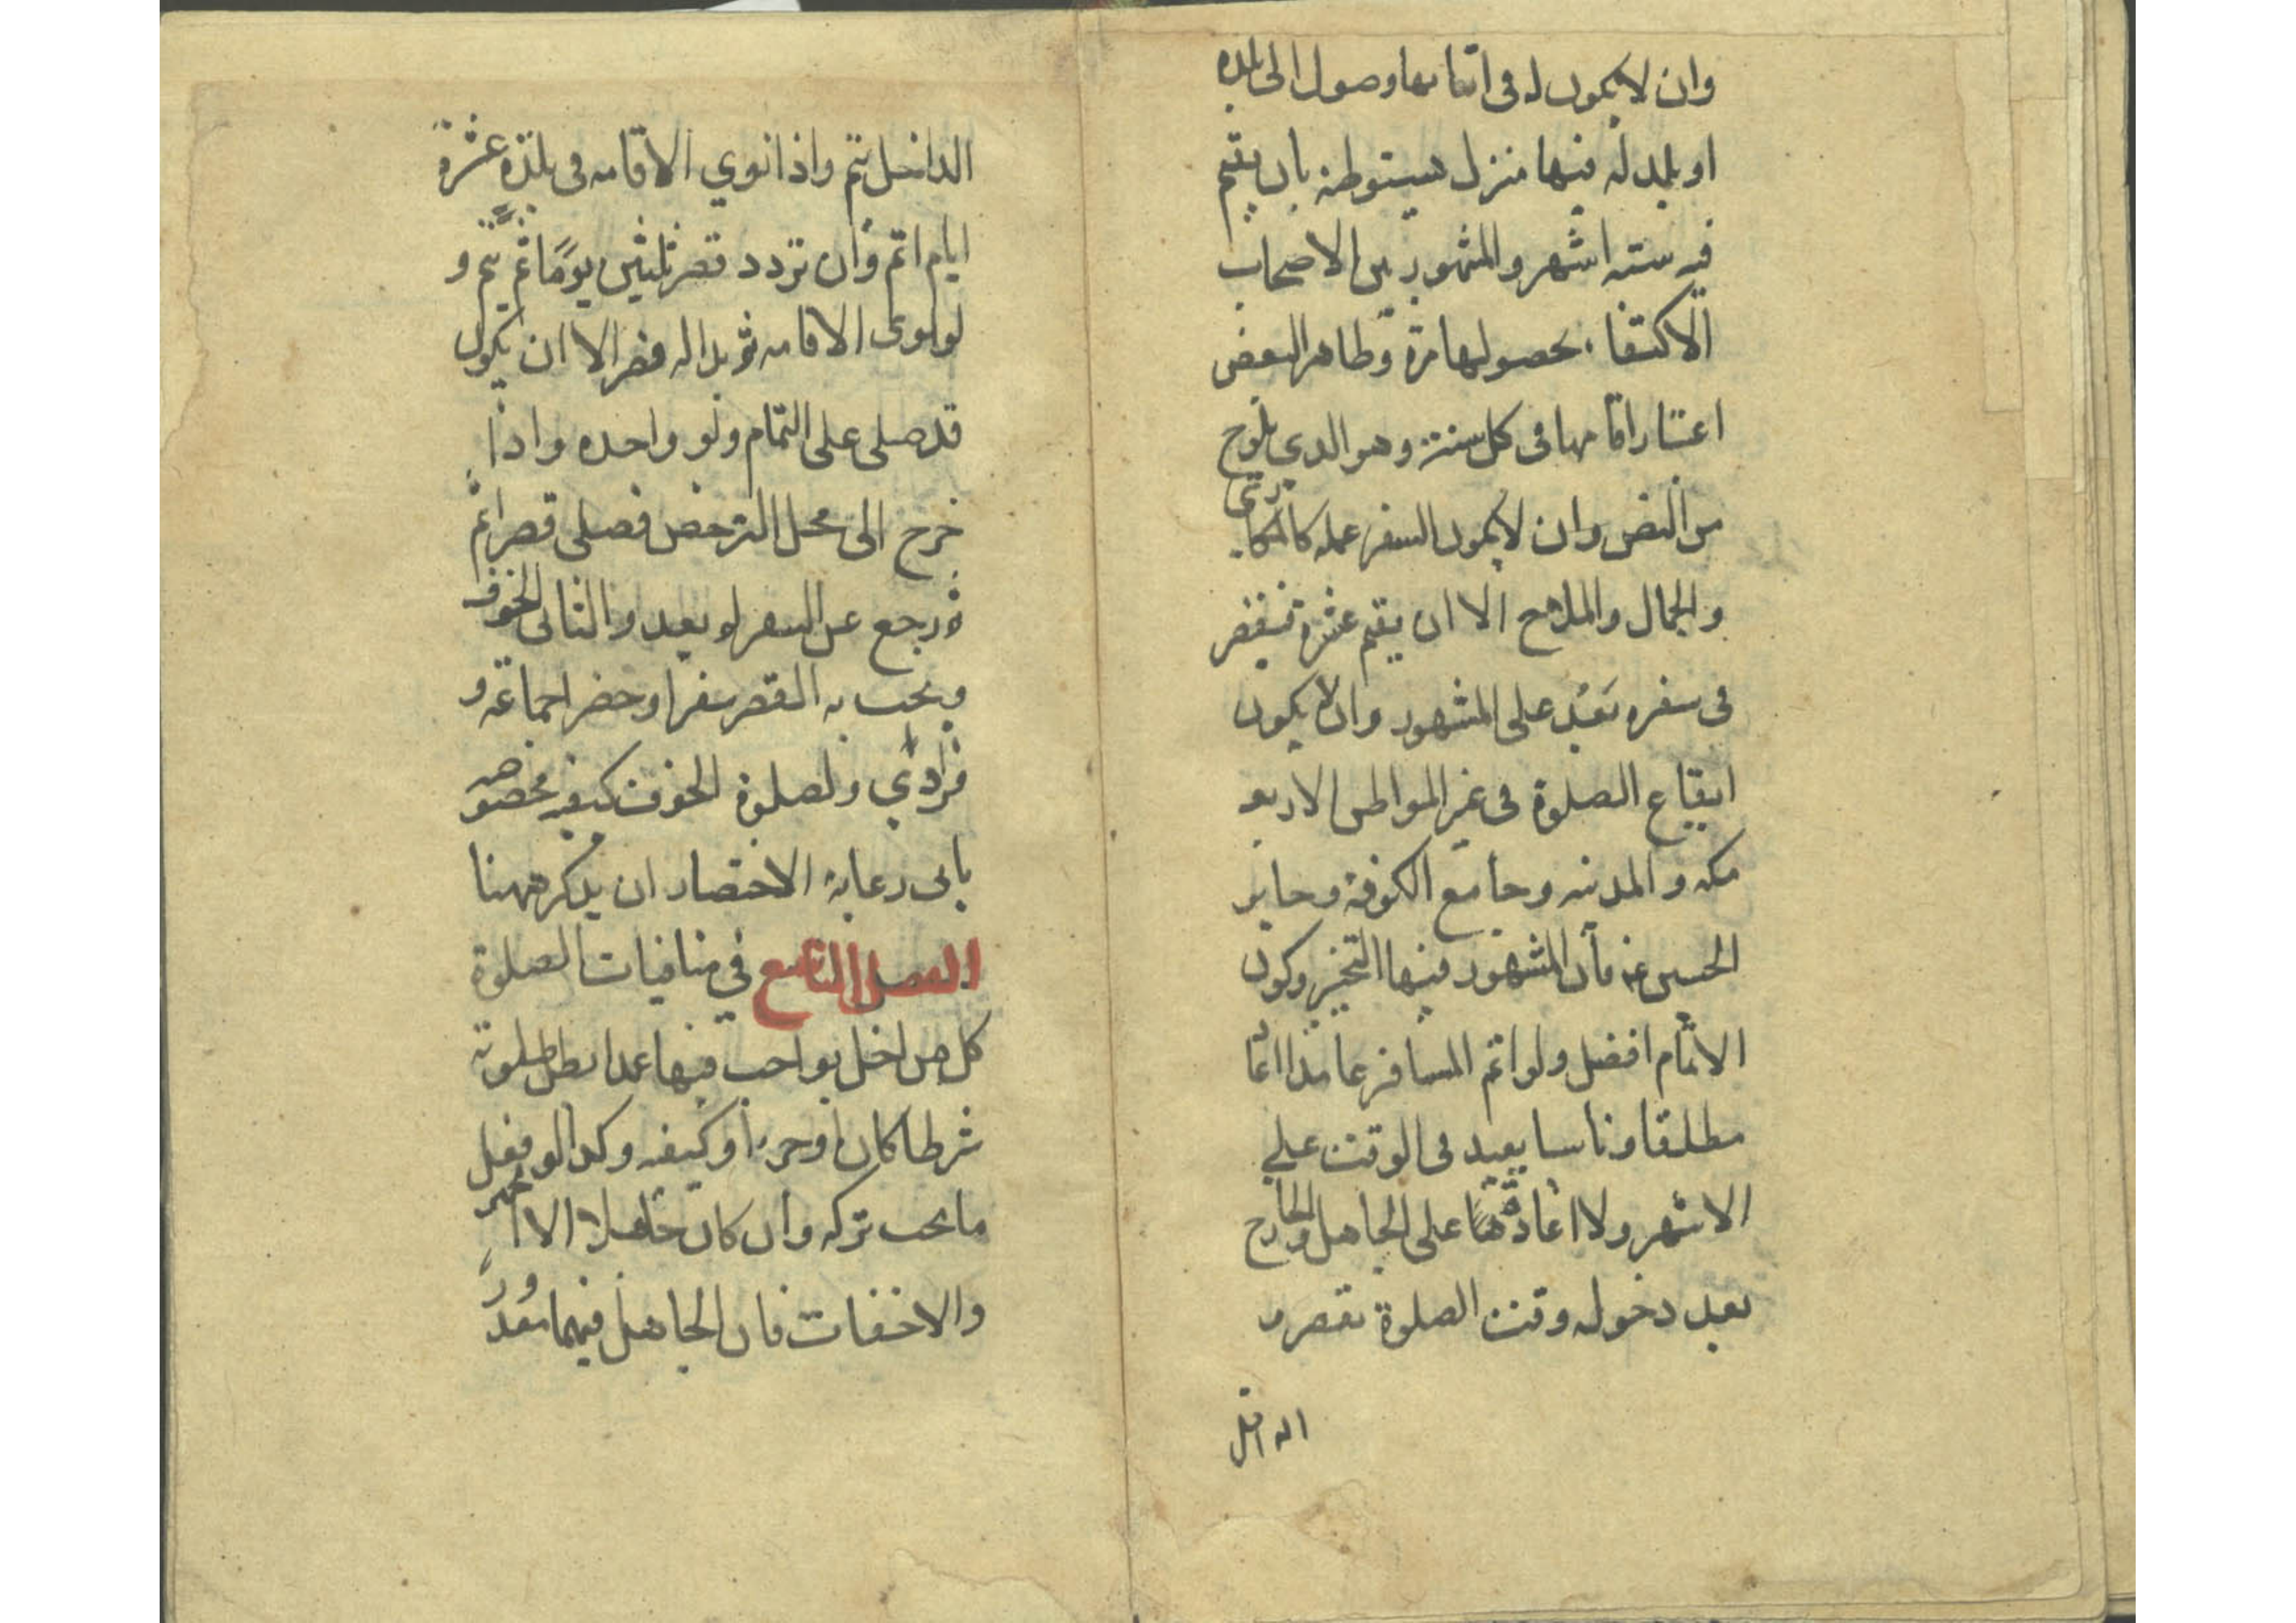 وان لا يكون له في اثنائها وصول الى بلده
او بلد له فيها منزل يستوطنه بان يقيم
فيه ستة اشهر والمشهور بين الاصحاب
الاكتفاء بحصولها مرة وظاهر البعض
اعتبار اقامتها في كل سنة وهو الذي يلوح
من النص وان لا يكون السفر عمله كالمكاري
والجمال والملاح الا ان يقيم عشرة فيقصر
في سفره بَعْدُ على المشهور وان لا يكون
ايقاع الصلوة في غير المواطن الاربعة
مكه والمدينه وجامع الكوفة وحاير
الحسين ع فان المشهور فيها التخيير وكون
الاتمام افضل ولو اتم المسافر عامدا اعاد
مطلقا وناسيا يعيد في الوقت على
الاشهر ولا اعادة هنا على الجاهل والخارج
بعد دخوله وقت الصلوة يقصر و
الداخل
الداخل يتم واذا نوي الاقامه في بلدة عشرة
ايام اتم وان تردد قصر ثلثين يومًا ثم يتم و
لو نوى الاقامه ثم بدا له قصر الا ان يكون
قد صلى على التمام ولو واحده واذا
خرج الى محل الترخص فصلى قصرا ثم
ثم رجع عن السفر لم يعد والثاني الخوف
ويجب به القصر سفرا وحضرا جماعة و
فرادي ولصلوة الخوف كيفيه مخصوصه
يابى رعاية الاختصار ان يذكر ههنا
الفصل التاسع في منافيات الصلوة
كل من اخل بواجب فيها عمدا بطل صلوته
شرطا كان او جزءا او كيفيه وكذا لو فعل
ما يجب تركه وان كان جاهلا الا الجهر
والاخفات فان الجاهل فيهما معذور